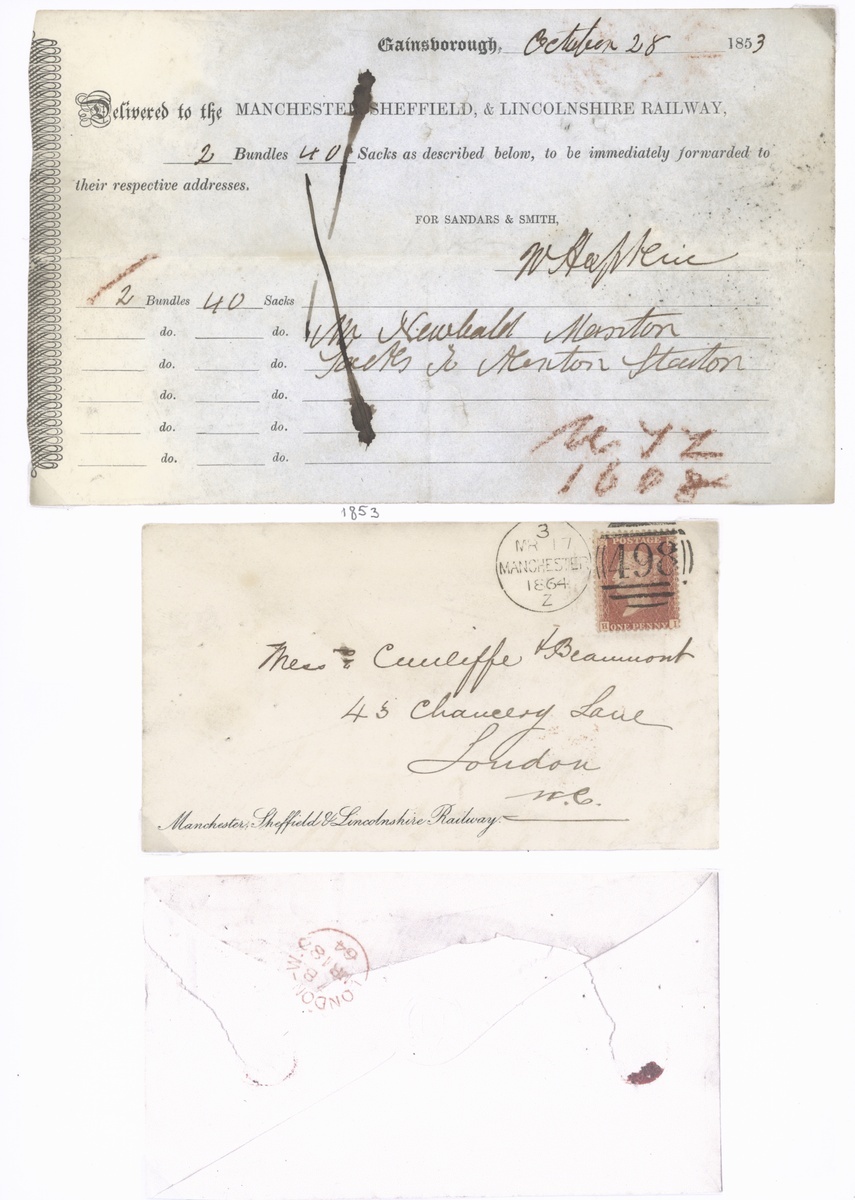 Gainsborough, October 28 1853
Delivered to the MANCHESTER, SHEFFIELD, & LINCOLNSHIRE RAILWAY,
2 Bundles 40 Sacks as described below, to be immediately forwarded to
their respective addresses.
FOR SANDARS & SMITH,
W
2 Bundles 40 Sacks
do. do. Mr Newbald Manton
do. do. Sacks to Kenton Station
do. do.
do. do.
do. do.
1008
1853
3
MR 17
MANCHESTER
1864
Z
POSTAGE
498
ONE PENNY
Messrs Cunliffe & Beaumont
43 Chancery Lane
London
W.C.
Manchester, Sheffield & Lincolnshire Railway.
LONDON-W.C
MR 18
64